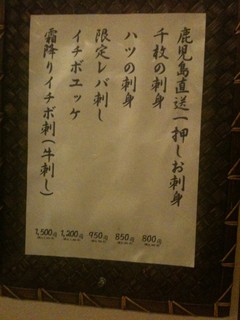 鹿児島直送一押しお刺身
千枚の刺身
ハツの刺身
限定レバ刺し
イチボユッケ
霜降りイチボ刺(牛刺し)
800円
850円
950円
1,200円
1,500円